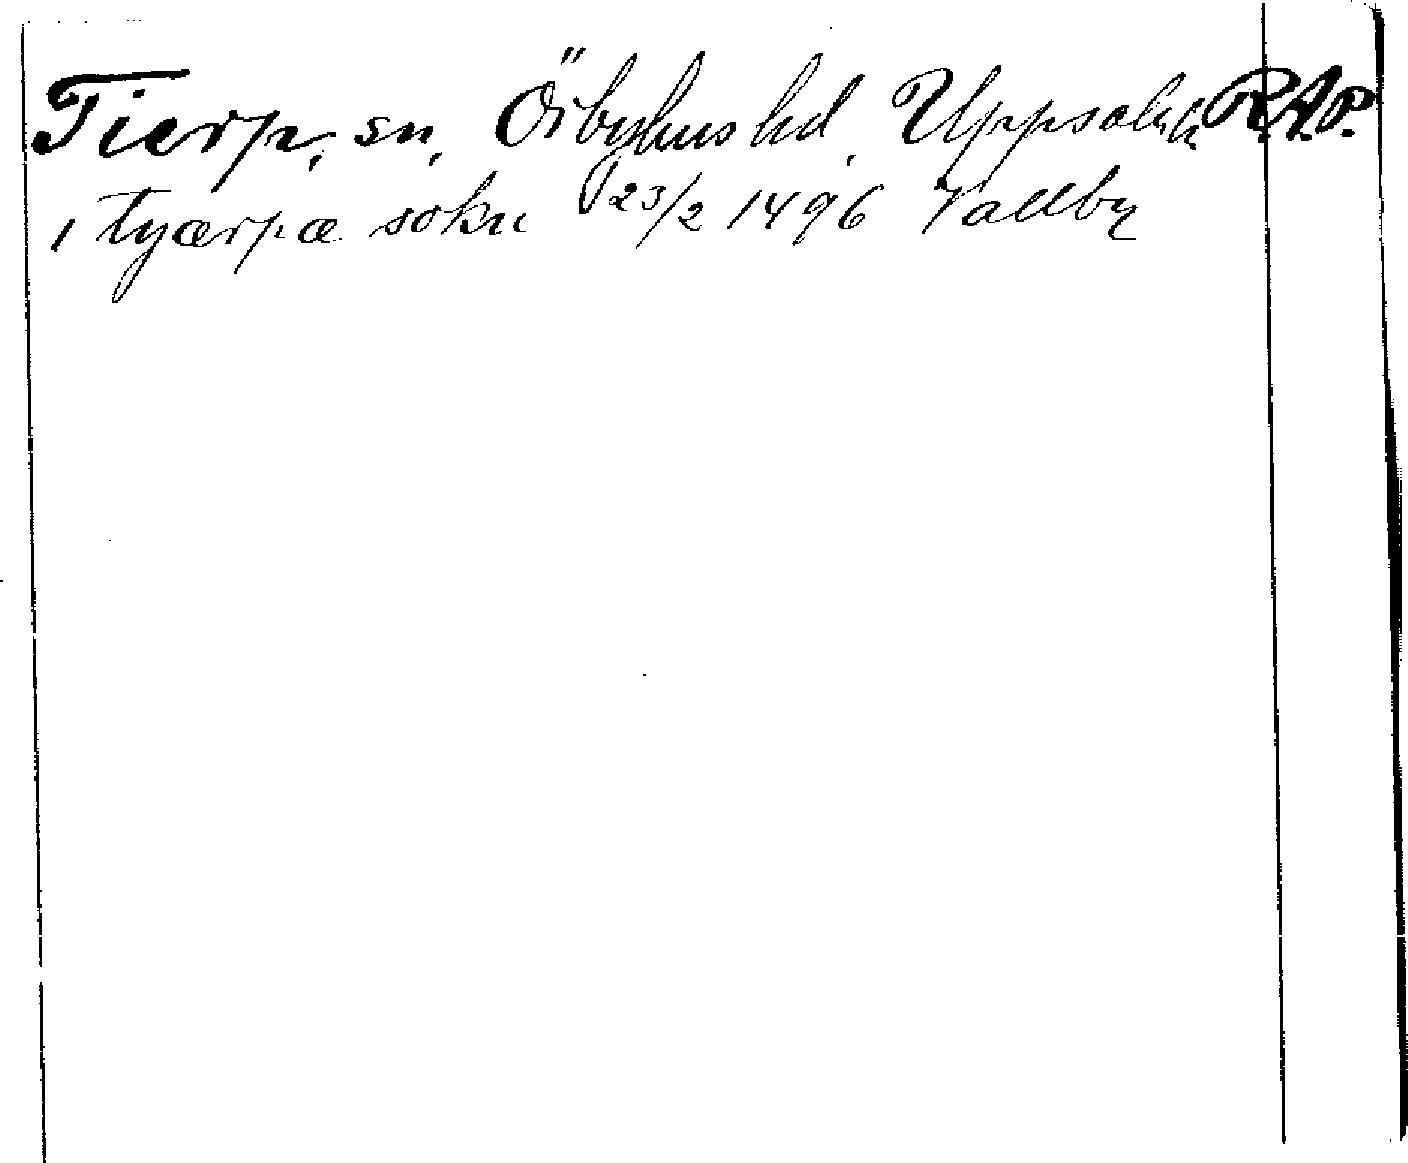 Tierp, sn, Örbyhus hd, Uppsala l. R.A.P.
i tyærpæ sokn 23/2 1496 Vallby